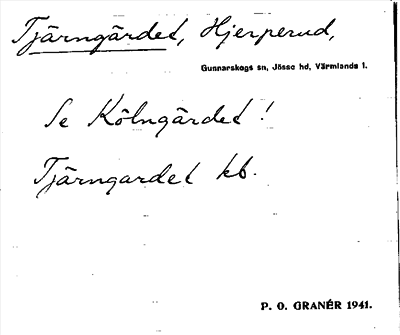 Tjärngärdet, Hjerperud,
Gunnarskogs sn, Jösse hd, Värmlands l.
Se Kölngärdet!
Tjärngardet kb.
P. O. GRANÉR 1941.